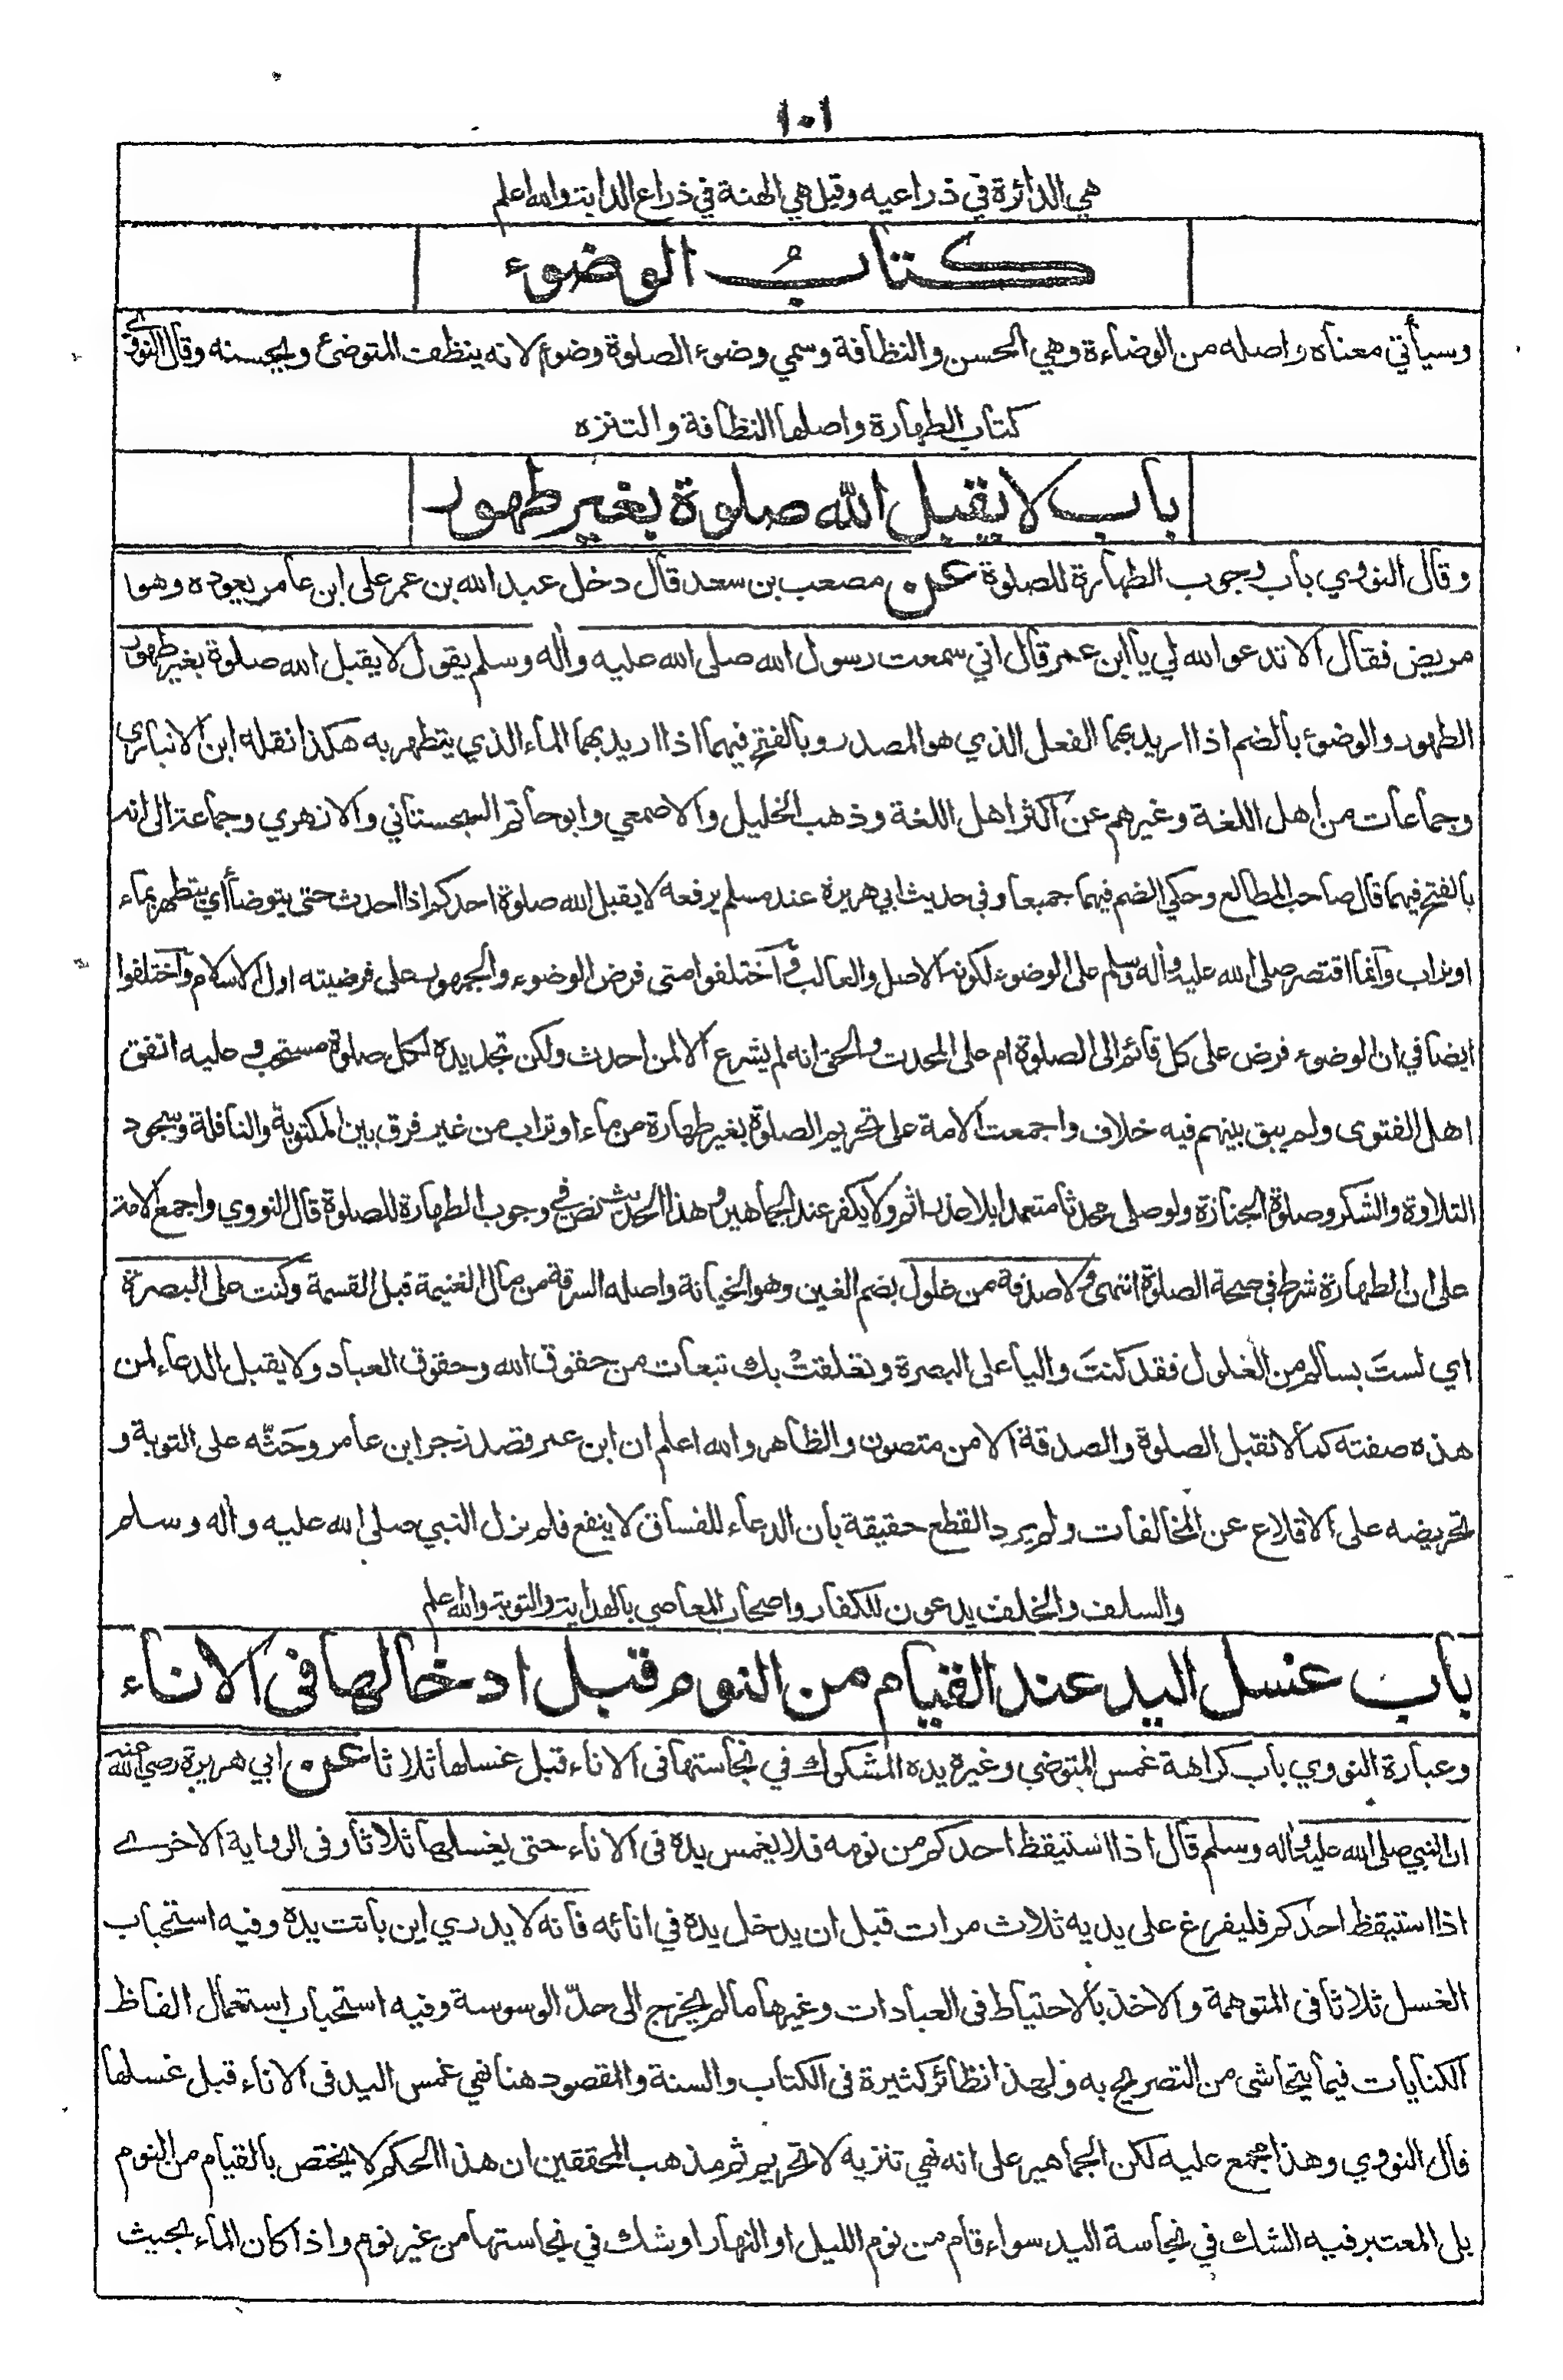 ١٠١
هي الدائرة في ذراعيه وقيل هي الهنة في ذراع الدابة والله اعلم
كتابُ الوضوء
وسيأتي معناه واصله من الوضاءة وهي الحسن والنظافة وسمي وضوء الصلوة وضوء لانه ينظف المتوضئ ويحسنه وقال النووي
كتاب الطهارة واصلها النظافة والتنزه
باب لا يقبل الله صلوة بغير طهور
وقال النووي باب وجوب الطهارة للصلوة عن مصعب بن سعد قال دخل عبد الله بن عمر على ابن عامر يعوده وهو
مريض فقال الا تدعو الله لي يا ابن عمر قال اني سمعت رسول الله صلى الله عليه وأله وسلم يقول لا يقبل الله صلوة بغير طهور
الطهور والوضوء بالضم اذا اريد بهما الفعل الذي هو المصدر وبالفتح فيهما اذا اريد بهما الماء الذي يتطهر به هكذا نقله ابن الانباري
وجماعات من اهل اللغة وغيرهم عن اكثر اهل اللغة وذهب الخليل والاصمعي وابو حاتم السجستاني والازهري وجماعة الى انه
بالفتح فيهما قال صاحب المطالع وحكي الضم فيهما جميعا وفي حديث ابي هريرة عند مسلم يرفعه لا يقبل الله صلوة احدكم اذا احدث حتى يتوضأ اي يتطهر بماء
او تراب وانما اقتصر صلى الله عليه وأله وسلم على الوضوء لكونه الاصل والغالب واختلفوا متى فرض الوضوء والجمهور على فرضيته اول الاسلام واختلفوا
ايضا في ان الوضوء فرض على كل قائم الى الصلوة ام على المحدث والحق انه لم يشرع الا لمن احدث ولكن تجديده لكل صلوة مستحب وعليه اتفق
اهل الفتوى ولم يبق بينهم فيه خلاف واجمعت الامة على تحريم الصلوة بغير طهارة من ماء او تراب من غير فرق بين المكتوبة والنافلة وسجود
التلاوة والشكر وصلوة الجنازة ولو صلى محدثا متعمدا بلا عذر اثم ولا يكفر عند الجماهير وهذا الحديث نص في وجوب الطهارة للصلوة قال النووي واجمع الامة
على ان الطهارة شرط في صحة الصلوة انتهى ولا صدقة من غلول بضم الغين وهو الخيانة واصله السرقة من مال الغنيمة قبل القسمة وكنت على البصرة
اي لستَ بسالم من الغلول فقد كنتَ واليا على البصرة وتعلقتْ بك تبعات من حقوق الله وحقوق العباد ولا يقبل الدعاء لمن
هذه صفته كما لا تقبل الصلوة والصدقة الا من متصون والظاهر والله اعلم ان ابن عمر قصد زجر ابن عامر وحَثّه على التوبة و
تحريضه على الاقلاع عن المخالفات ولم يرد القطع حقيقة بان الدعاء للفساق لا ينفع فلم يزل النبي صلى الله عليه وأله وسلم
والسلف والخلف يدعون للكفار واصحاب المعاصي بالهداية والتوبة والله اعلم
باب غسل اليد عند القيام من النوم قبل ادخالها فى الاناء
وعبارة النووي باب كراهة غمس المتوضي وغيره يده المشكوك في نجاستها فى الاناء قبل غسلها ثلاثا عن ابي هريرة رضي الله عنه
ان النبي صلى الله عليه وأله وسلم قال اذا استيقظ احدكم من نومه فلا يغمس يده فى الاناء حتى يغسلها ثلاثا وفى الرواية الاخرى
اذا استيقظ احدكم فليفرغ على يديه ثلاث مرات قبل ان يدخل يده في انائه فانه لا يدري اين باتت يده وفيه استحباب
الغسل ثلاثا فى المتوهمة والاخذ بالاحتياط فى العبادات وغيرها ما لم يخرج الى حدّ الوسوسة وفيه استحباب استعمال الفاظ
الكنايات فيما يتحاشى من التصريح به ولهذا نظائر كثيرة فى الكتاب والسنة والمقصود هنا نهي غمس اليد فى الاناء قبل غسلها
قال النووي وهذا مجمع عليه لكن الجماهير على انه نهي تنزيه لا تحريم ثم مذهب المحققين ان هذا الحكم لا يختص بالقيام من النوم
بل المعتبر فيه الشك في نجاسة اليد سواء قام من نوم الليل او النهار او شك في نجاستها من غير نوم واذا كان الماء بحيث